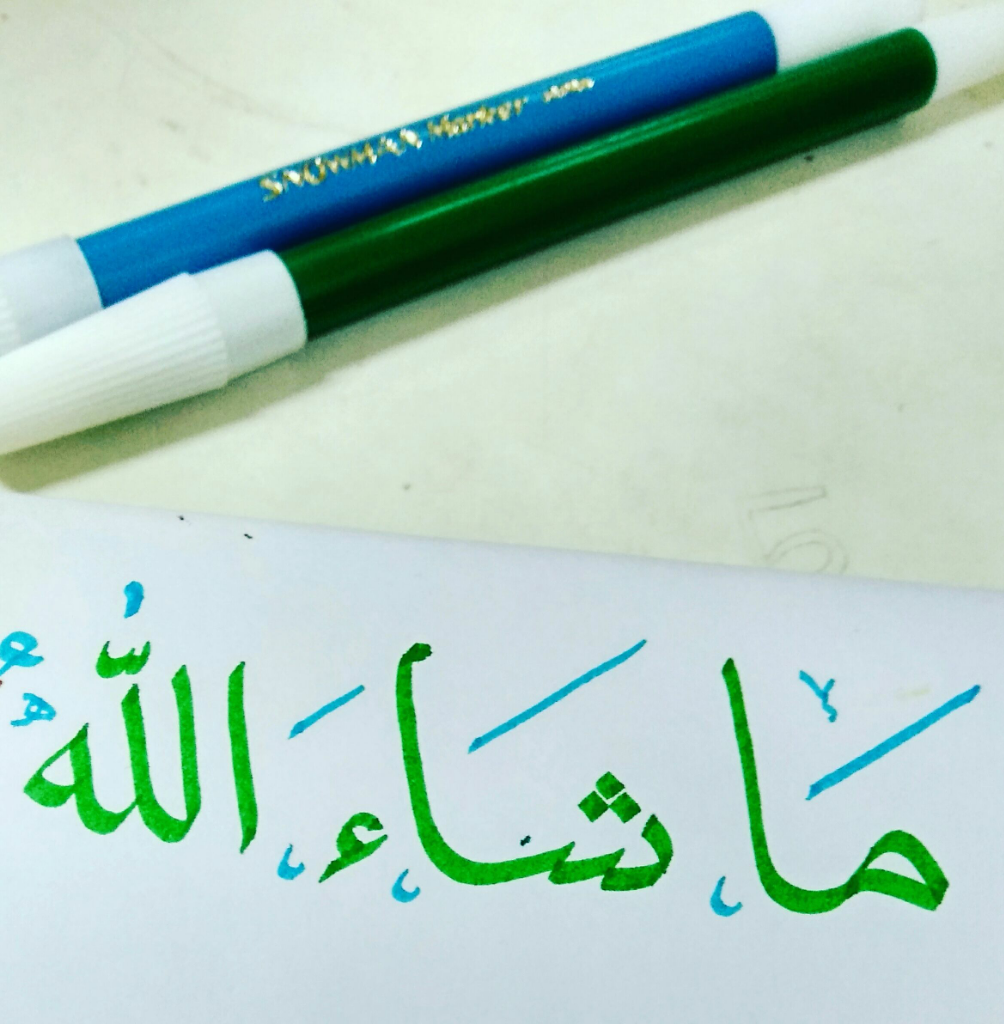 SNOWMAN Marker JAPAN
مَا شَاءَ اللّٰهُ